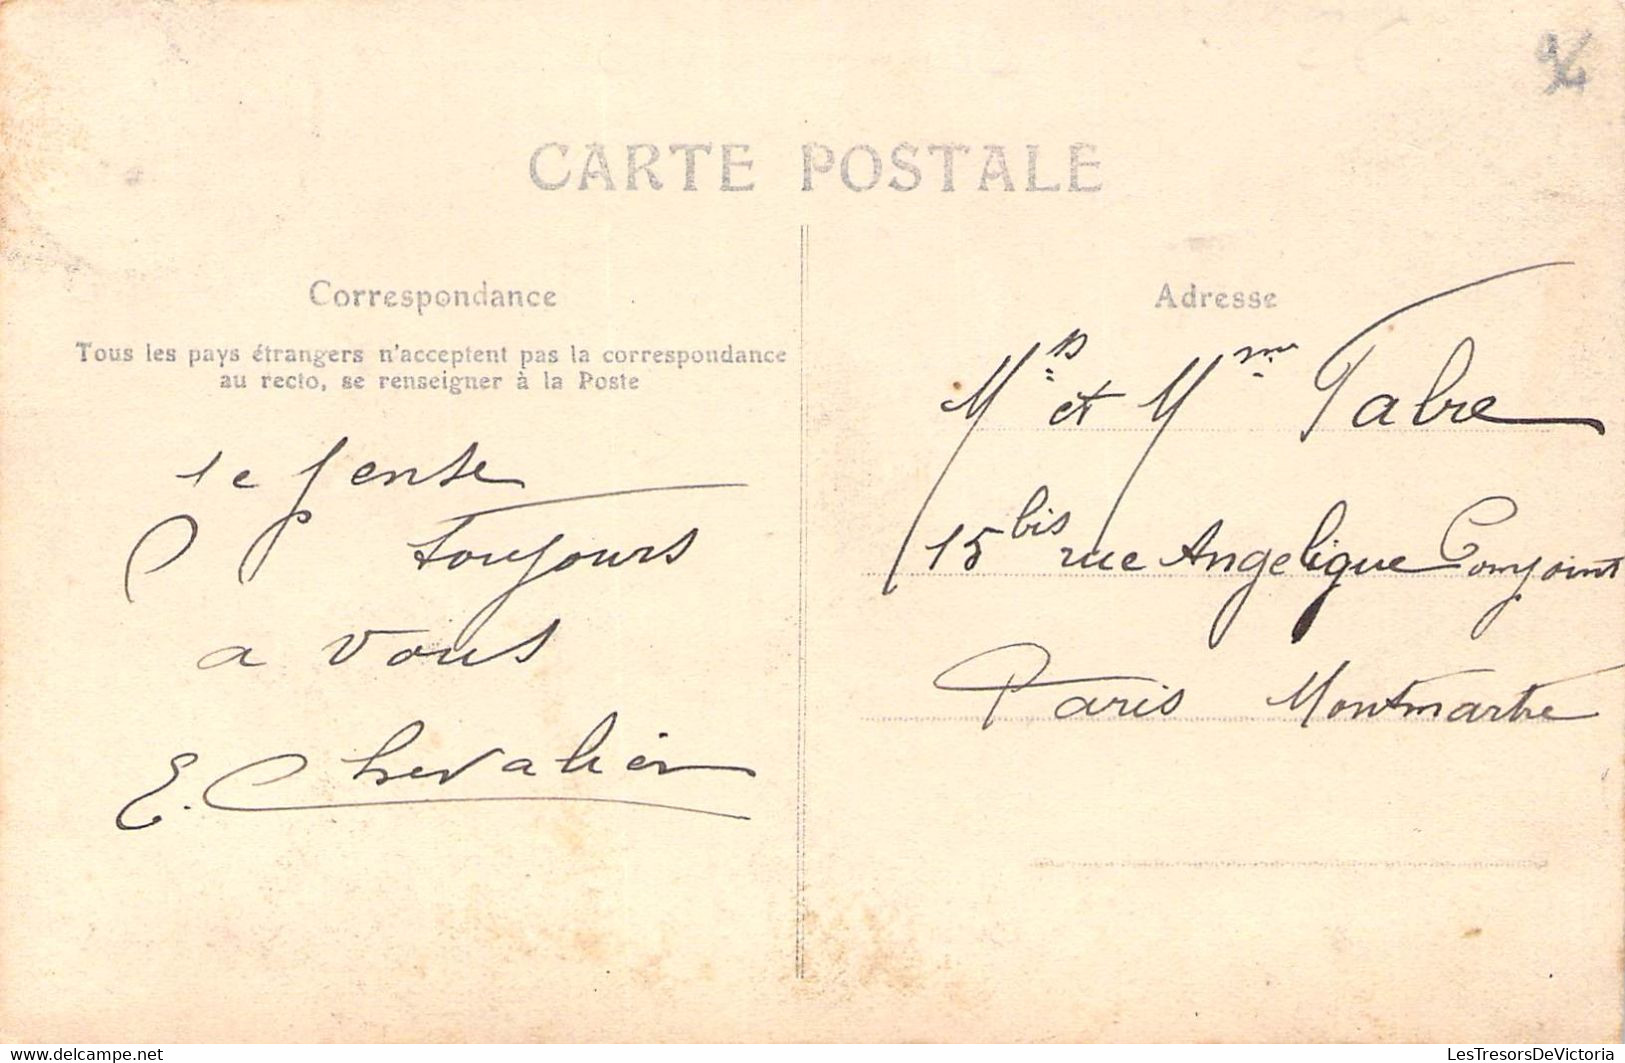 CARTE POSTALE
Correspondance
Tous les pays étrangers n'acceptent pas la correspondance
au recto, se renseigner à la Poste
Je pense
toujours
a vous
E. Chevalier
Adresse
Mr et Mme Fabre
15 bis rue Angelique Compoint
Paris Montmartre
delcampe.net
LesTresorsDeVictoria